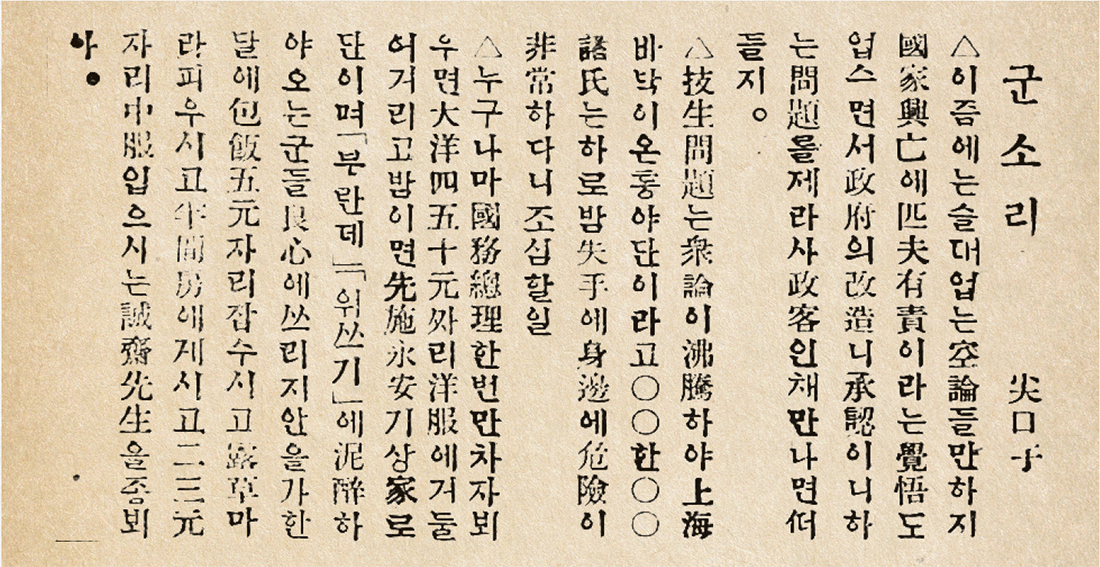 군소리 尖口子
△이즘에는슬대업는空論들만하지
國家興亡에匹夫有責이라는覺悟도
업스면서政府의改造니承認이니하
는問題를제라사政客인채만나면떠
들지。
△技生問題는衆論이沸騰하야上海
바닥이온통야단이라고〇〇한〇〇
諸氏는하로밤失手에身邊에危險이
非常하다니조심할일
△누구나마國務總理한번만차자뵈
우면大洋四五十元짜리洋服에거둘
어거리고밤이면先施永安기상家로
단이며「부란데」「위쓰기」에泥醉하
야오는군들良心에쓰리지안을가한
달에包飯五元자리잡수시고露草마
라피우시고年間房에게시고二三元
자리中服입으시는誠齋先生을좀뵈
아。